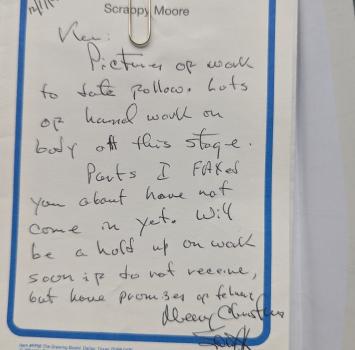 Scrappy Moore
Ken:
Pictures of work
to date follow. Lots
of hand work on
body at this stage.
Parts I FAXed
you about have not
come in yet. Will
be a hold up on work
soon if do not receive,
but have promises of
Merry Christmas